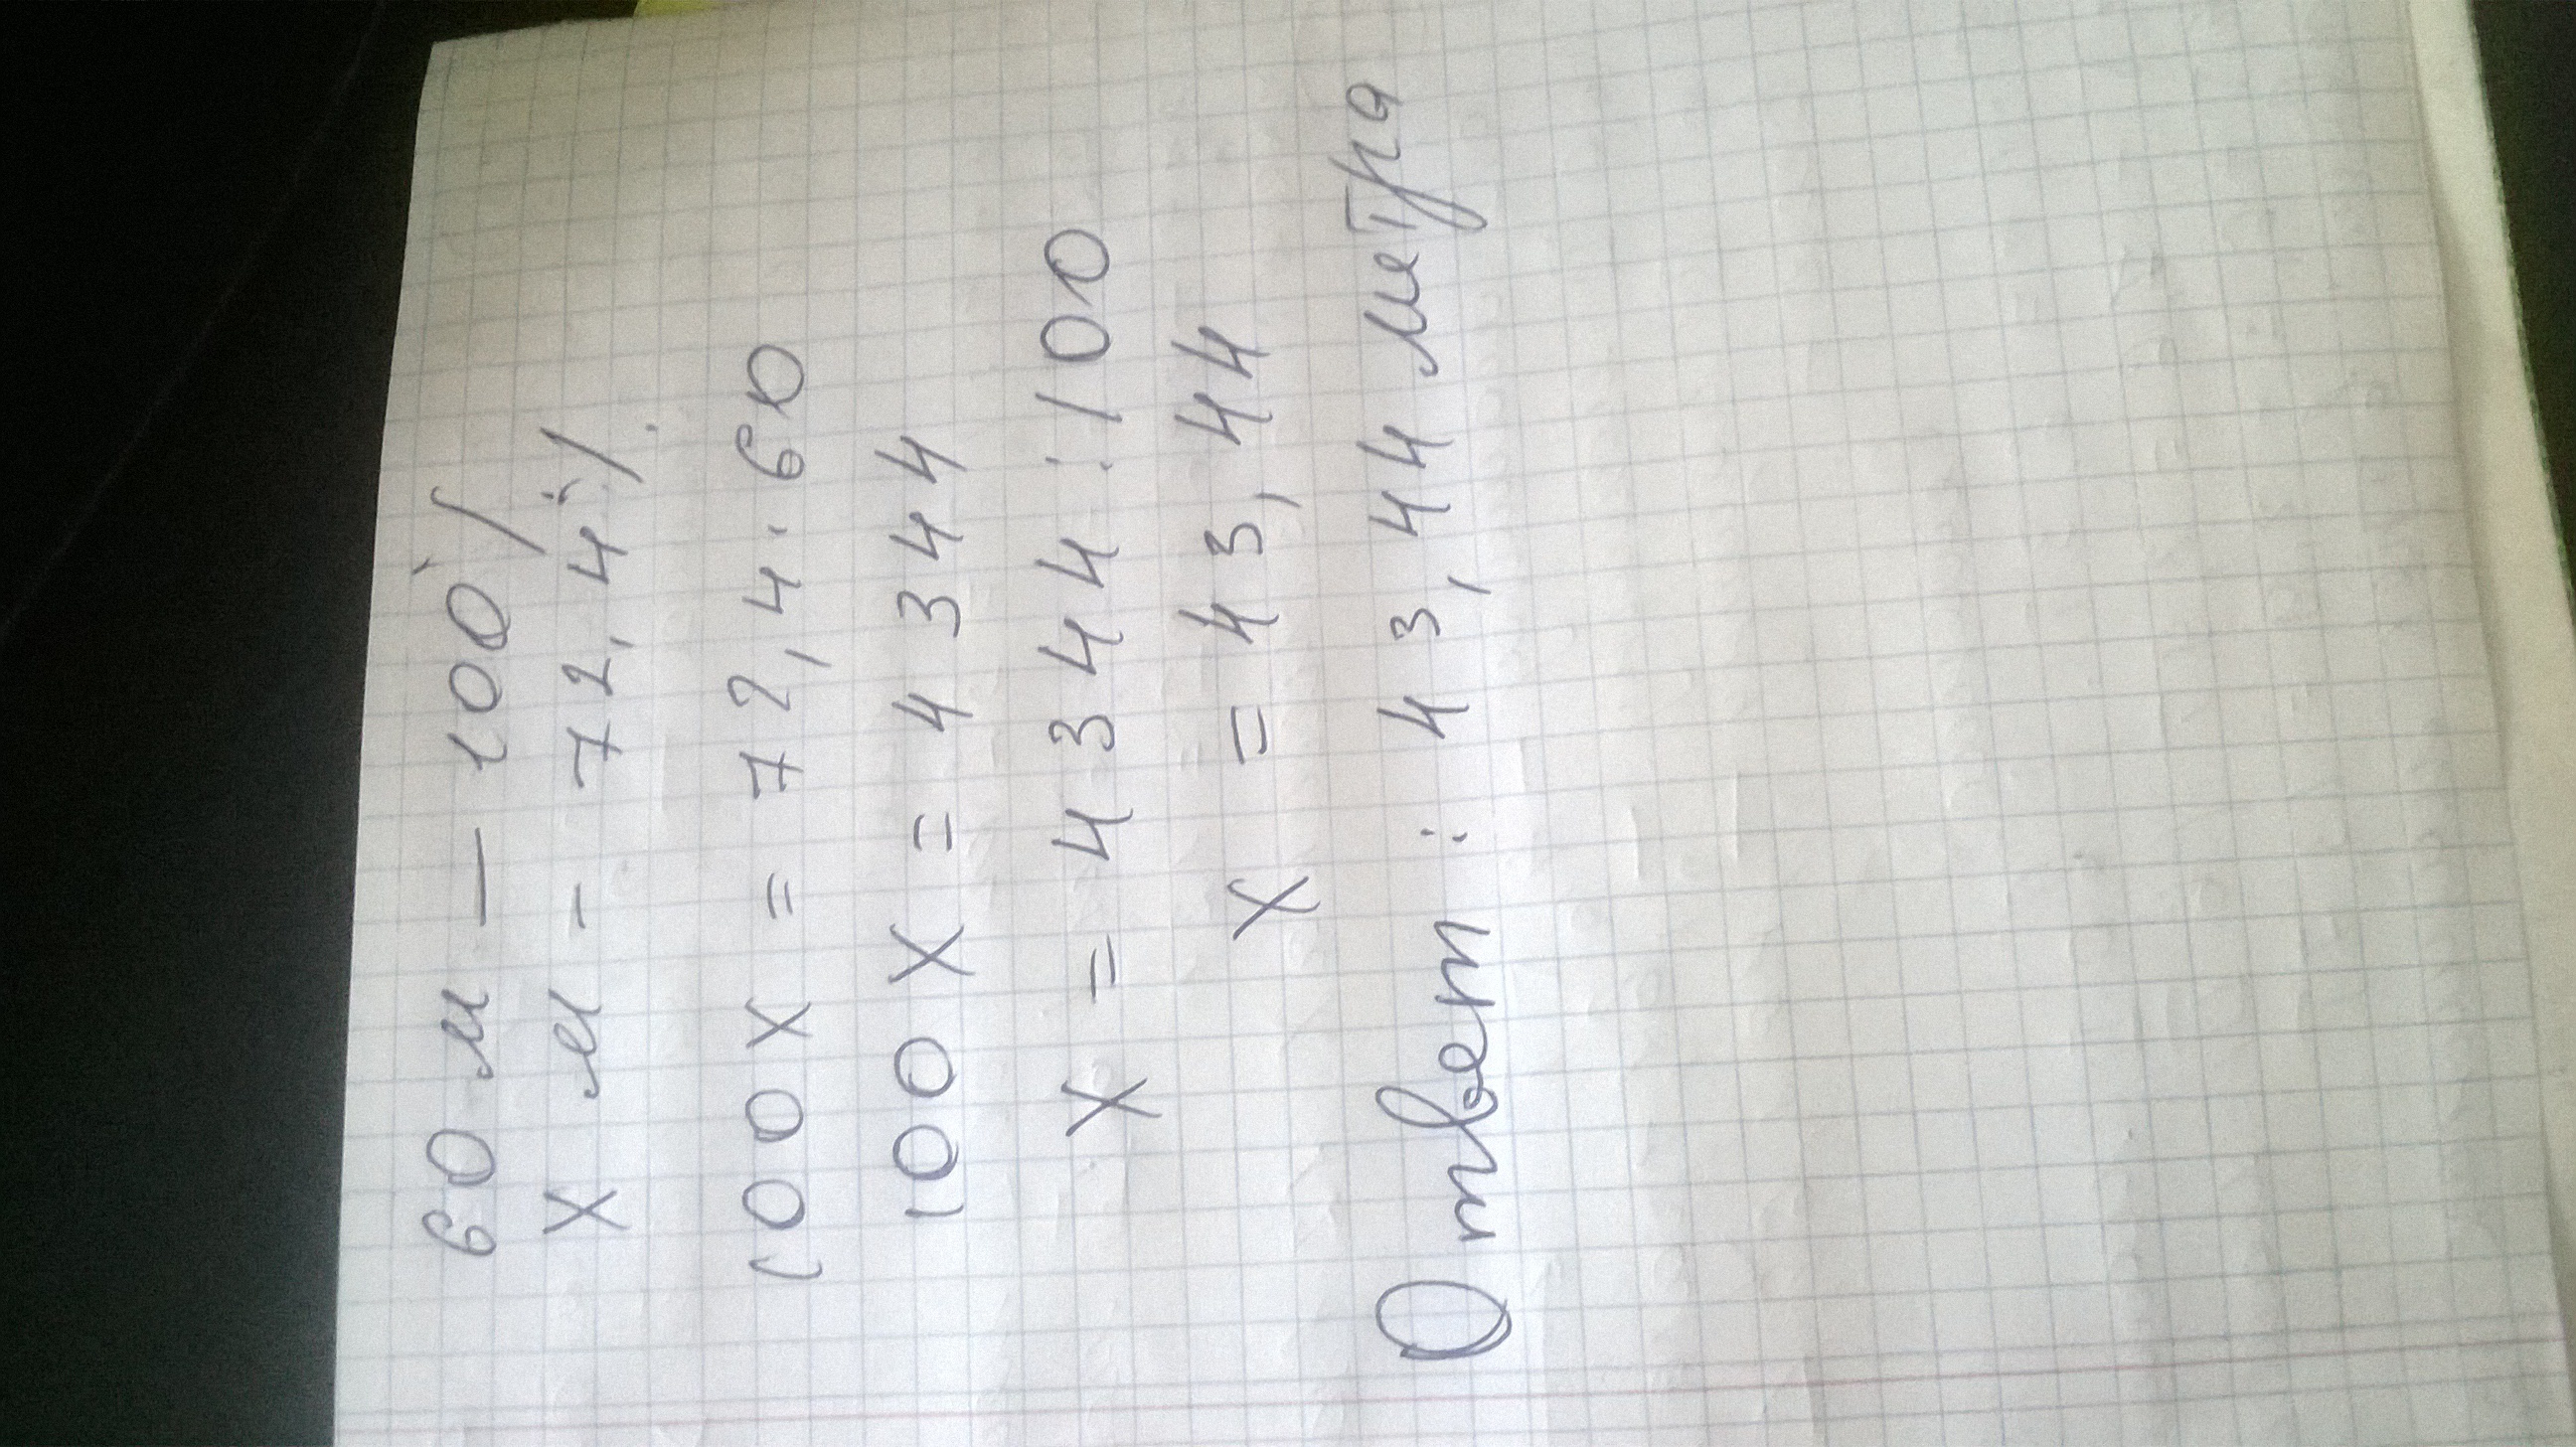 60 м — 100%
х м - 72,4%
100х = 72,4·60
100х = 4344
х = 4344:100
х = 43,44
Ответ: 43,44 метра